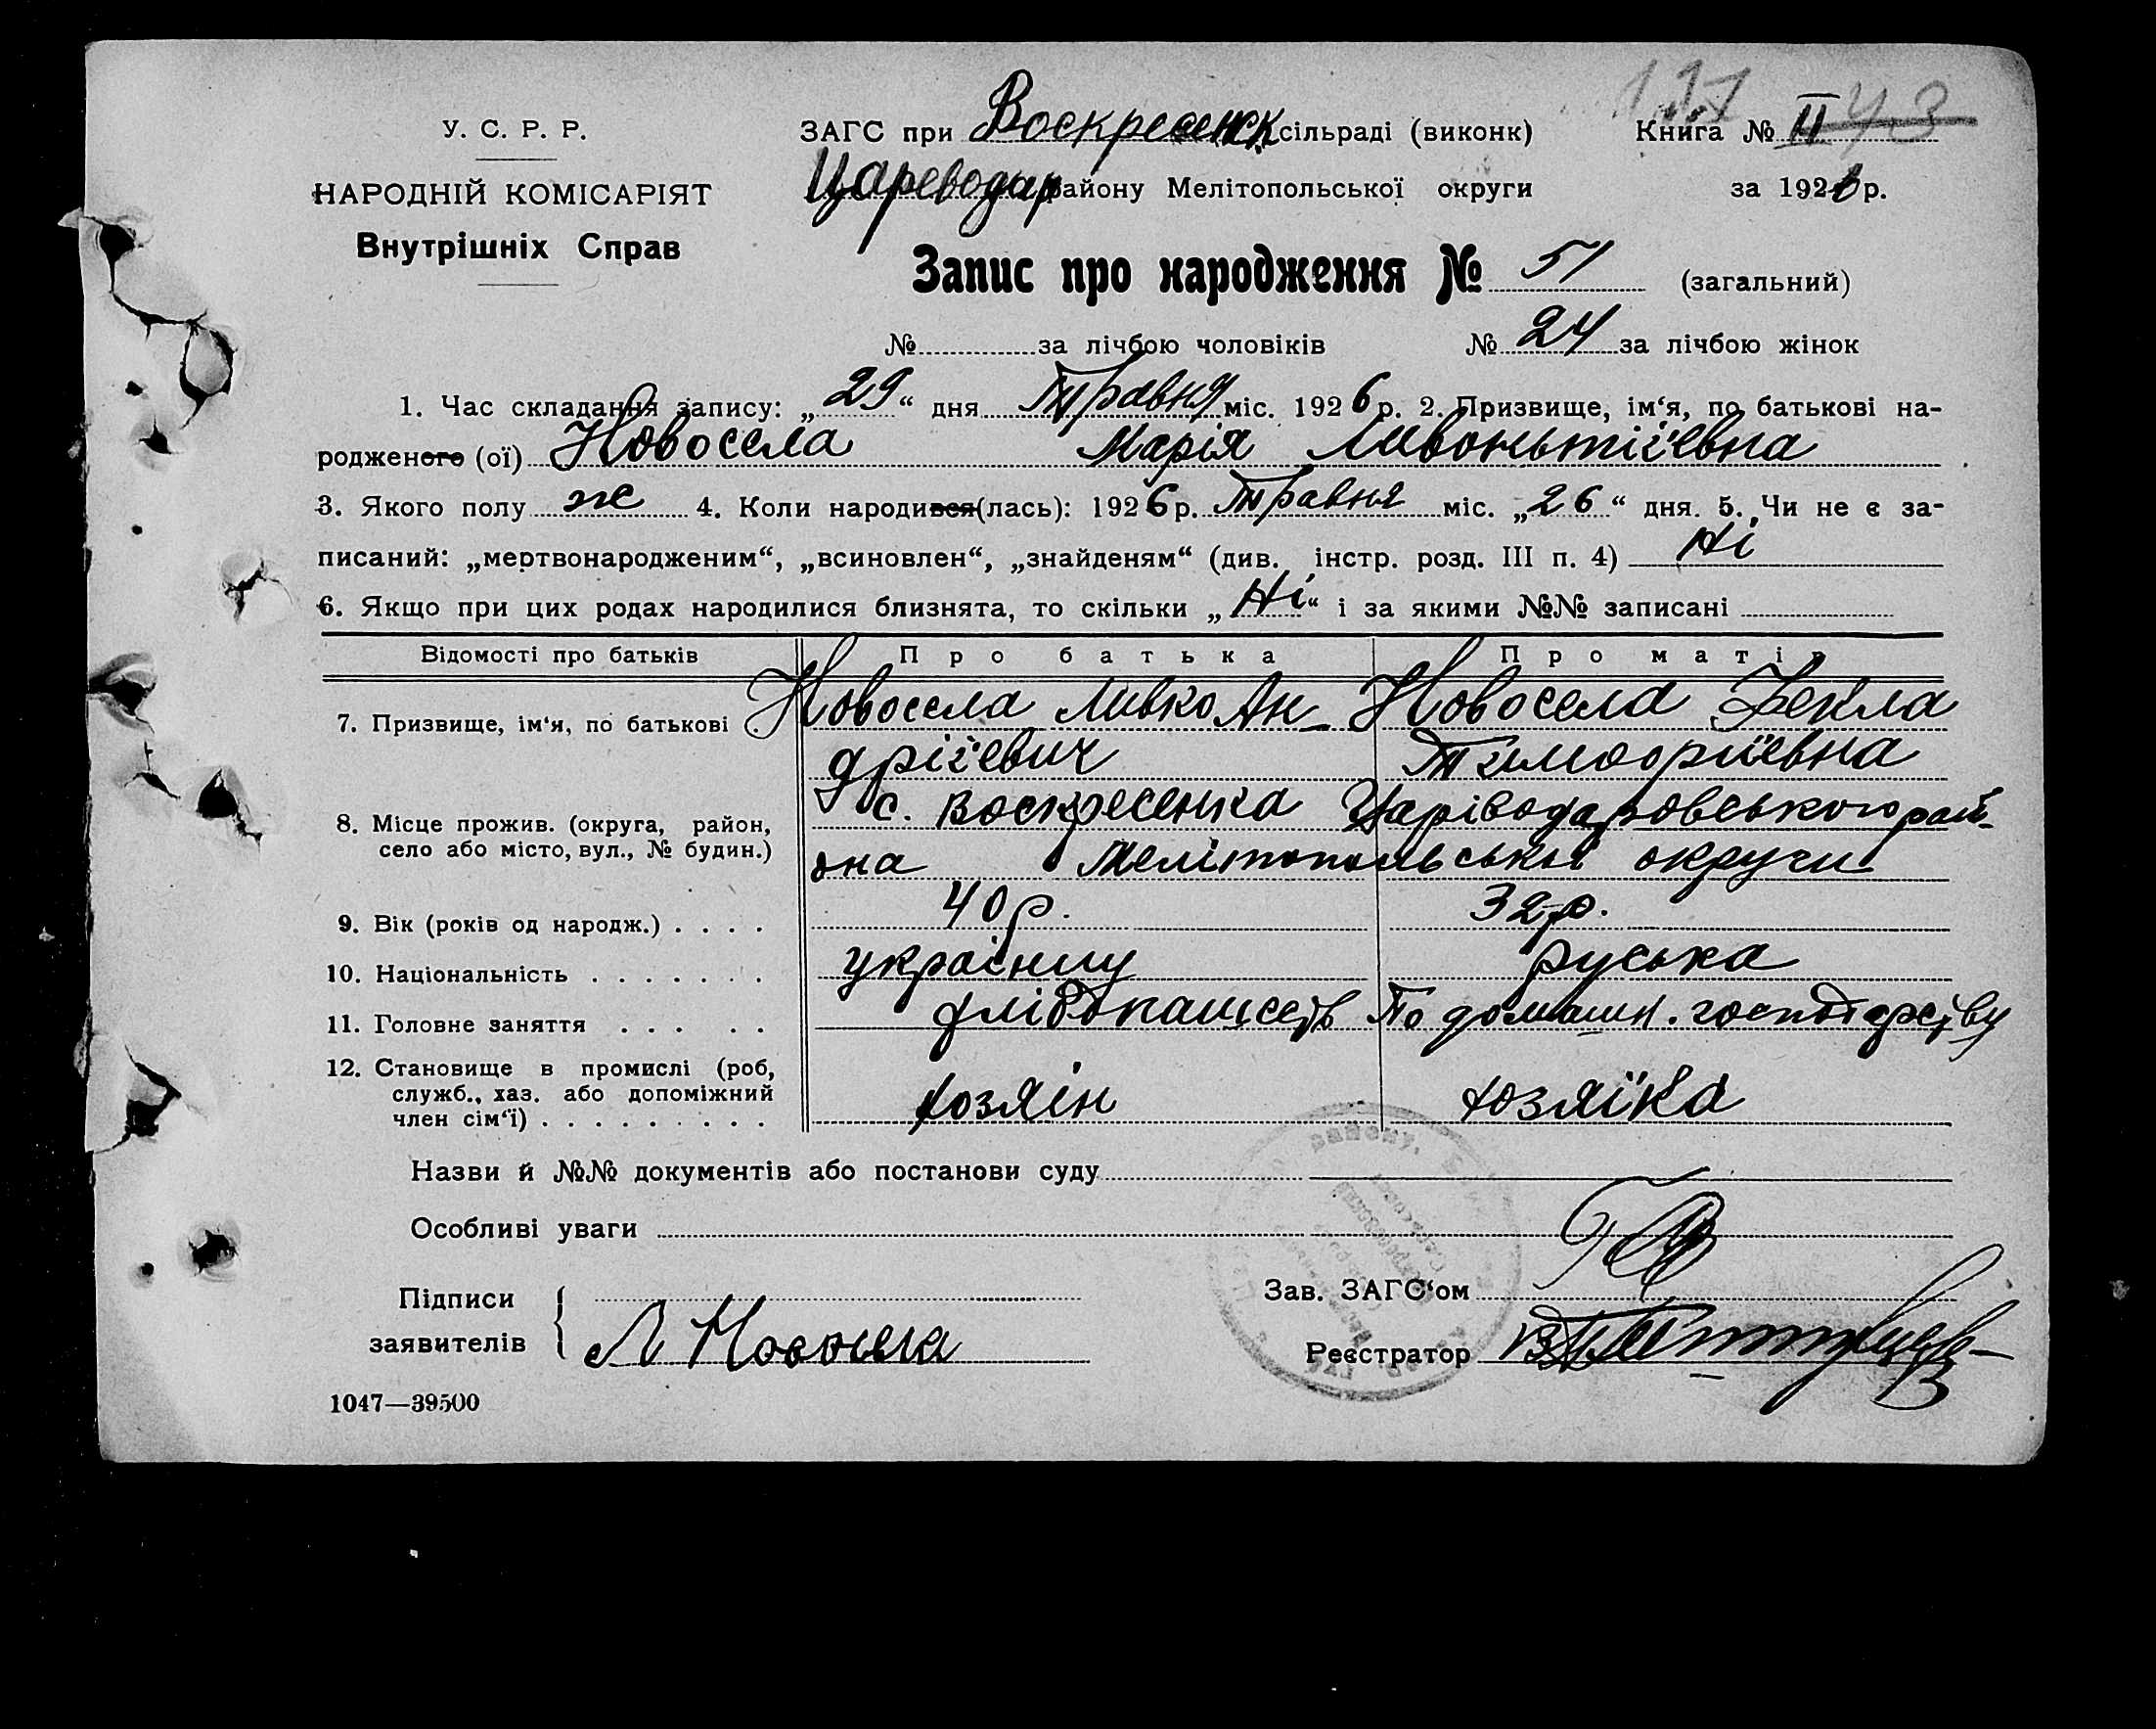 117
У. С. Р. Р.
ЗАГС при Воскресенск сільраді (виконк)
Книга № II 43
НАРОДНІЙ КОМІСАРІЯТ
Цареводар району Мелітопольської округи
за 1926 р.
Внутрішніх Справ
Запис про народження № 51 (загальний)
№ за лічбою чоловіків № 24 за лічбою жінок
1. Час складання запису: „29“ дня Травня міс. 1926 р. 2. Призвище, ім‘я, по батькові на-
родженого (ої) Новосела Марія Ливоньтіївна
3. Якого полу ж 4. Коли народився(лась): 1926 р. Травня міс. „26“ дня. 5. Чи не є за-
писаний: „мертвонародженим“, „всиновлен“, „знайденям“ (див. інстр. розд. III п. 4) Ні
6. Якщо при цих родах народилися близнята, то скільки „Ні“ і за якими №№ записані
Відомості про батьків Про батька Про матір
7. Призвище, ім‘я, по батькові . Новосела Ливко Ан- Новосела Фекла
дрієвич
8. Місце прожив. (округа, район, с. Воскресенка Царіводаровського рай-
село або місто, вул., № будин.) она Мелітопольськы округи
9. Вік (років од народж.) . . . . 40 р. 32 р.
10. Національність . . . . . . . руська
11. Головне заняття . . . . . По домашн. господарству
12. Становище в промислі (роб,
служб., хаз. або допоміжний хозяїн хозяїка
член сім‘ї) . . . . . . . . .
Назви й №№ документів або постанови суду
Особливі уваги
Підписи
Зав. ЗАГС‘ом
заявителів Л Новосела
Реєстратор
1047—39500